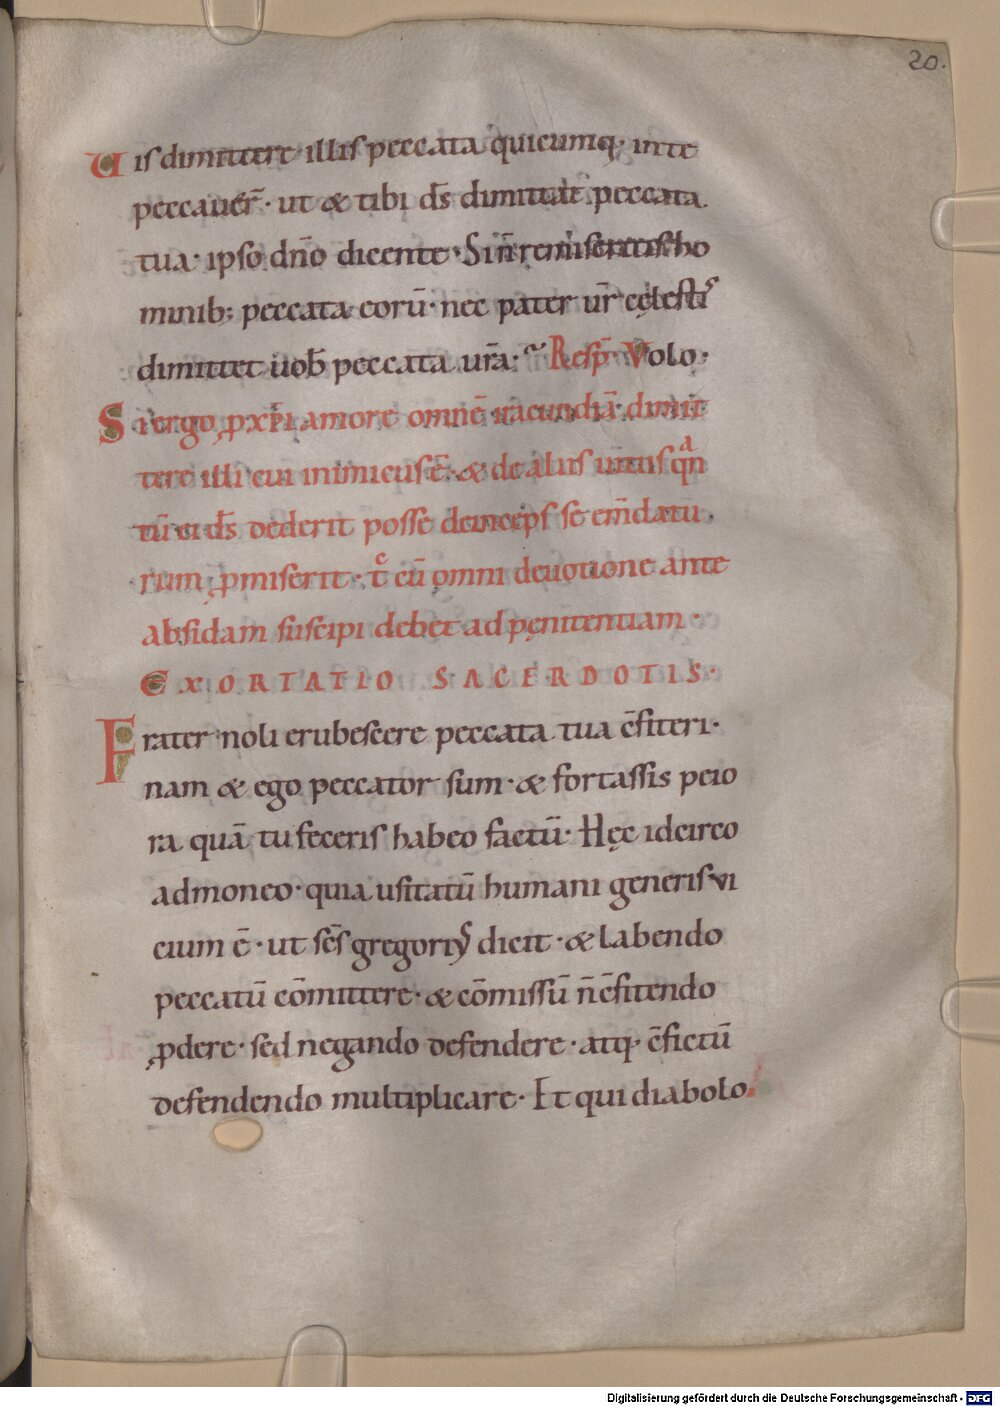 20.
Uis dimittere illis peccata quicumq; in te
peccauer̄· ut & tibi d̄s dimittat peccata
tua· ipso dn̄o dicente· Si n̄ remiseritis ho
minib; peccata eorū· nec pater ur̄ cęlestis
dimittet uob̄ peccata ur̄a· Resp̄· Volo·
Si ergo ꝓ xp̄i amore omnē iracundiā dimit
tere illi cui inimicus ē· & de aliis uitiis qͣn
tū ei d̄s dederit posse deinceps se em̄datu
rum ꝓmiserit· tͨ cū omni deuotione ante
absidam suscipi debet ad pęnitentiam·
EXORTATIO SACERDOTIS·
Frater noli erubescere peccata tua c̄fiteri·
nam & ego peccator sum· & fortassis peio
ra quā tu feceris habeo factū· Hęc idcirco
admoneo· quia usitatū humani generis vi
cium ē· ut sc̄s gregoriꝰ dicit· & labendo
peccatū cōmittere· & cōmissū n̄ c̄fitendo
ꝓdere· sed negando defendere· atq; c̄fictū
defendendo multiplicare· Et qui diabolo
Digitalisierung gefördert durch die Deutsche Forschungsgemeinschaft - DFG